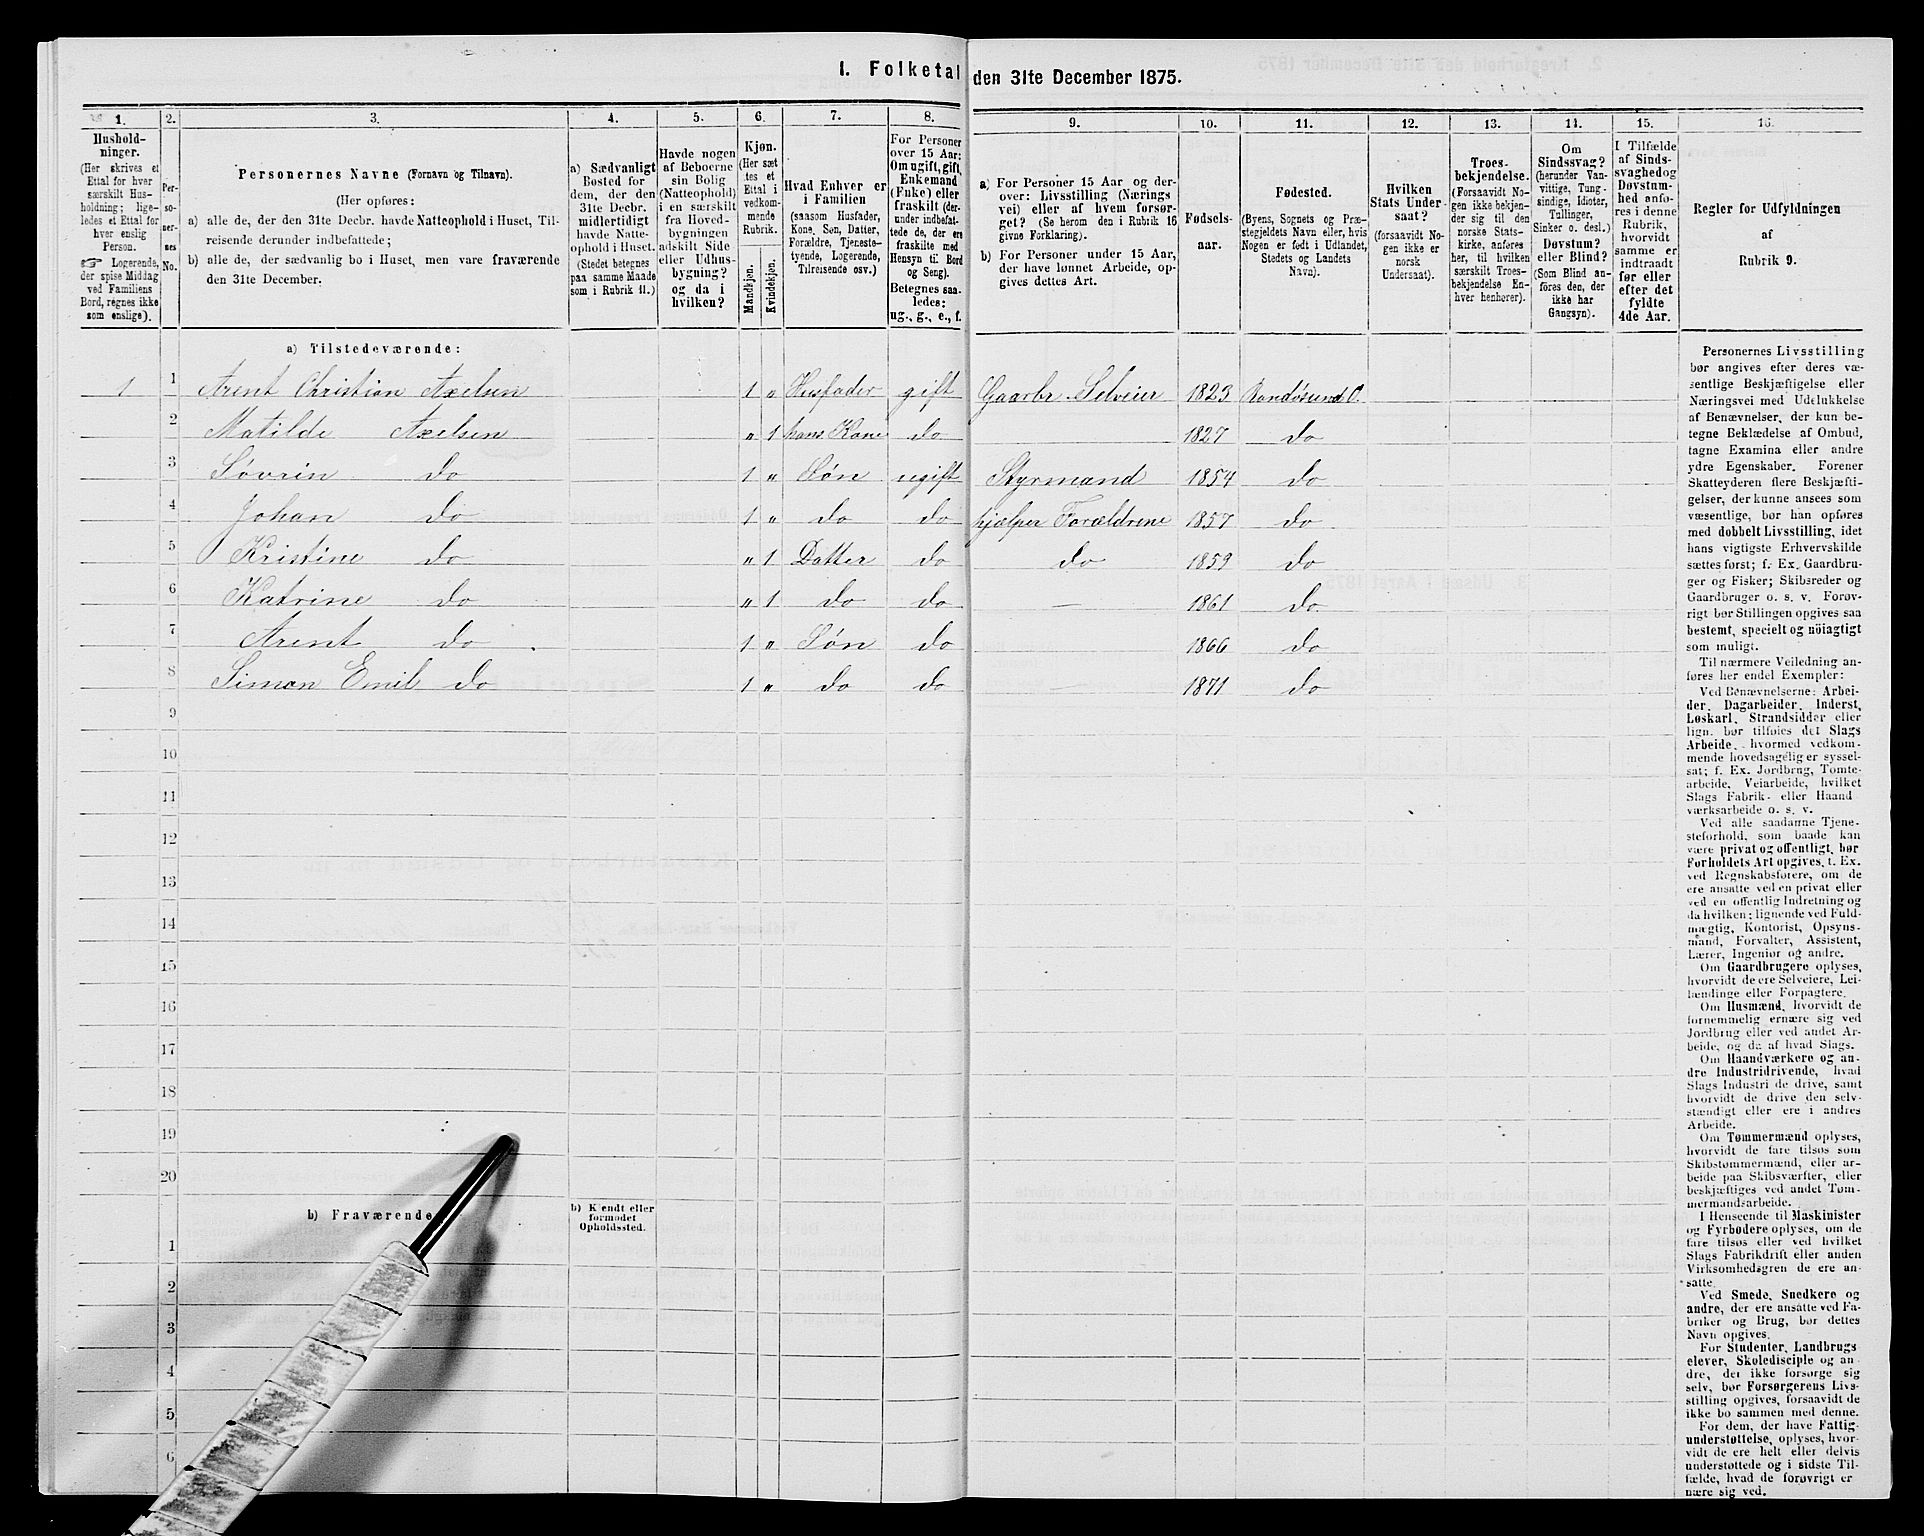 1. Folketal den 31te December 1875.
1. 2. 3. 4. 5. 6. 7. 8. 9. 10. 11. 12. 13. 14. 15. 16.
Hushold-
ninger.
(Her skrives et
Ettal for hver
særskilt Hus-
holdning; lige-
ledes et Ettal for
hver enslig
Person.
☞ Logerende,
der spise Middag
ved Familiens
Bord, regnes ikke
som enslige).
Per-
so-
ner-
nes
No.
Personernes Navne (Fornavn og Tilnavn).
(Her opføres:
a) alle de, der den 31te Decbr. havde Natteophold i Huset, Til-
reisende derunder indbefattede;
b) alle de, der sædvanlig bo i Huset, men vare fraværende
den 31te December.
a) Sædvanligt
Bosted for
dem, der den
31te Decbr.
midlertidigt
havde Natte-
ophold i Huset.
(Stedet betegnes
paa samme Maade
som i Rubrik 11.)
Havde nogen
af Beboerne
sin Bolig
(Natteophold)
i en særskilt
fra Hoved-
bygningen
adskilt Side
eller Udhus-
bygning?
og da i
hvilken?
Kjøn.
(Her sæt
tes et
Ettal i
vedkom-
mende
Rubrik.
Mandkjøn.
Kvindekjøn.
Hvad Enhver er
i Familien
(saasom Husfader,
Kone, Søn, Datter,
Forældre, Tjeneste-
tyende, Logerende,
Tilreisende osv.)
For Personer
over 15 Aar:
Om ugift, gift,
Enkemand
(Enke) eller
fraskilt (der-
under indbefat-
tede de, der ere
fraskilte med
Hensyn til Bord
og Seng).
Betegnes saa-
ledes:
ug., g., e., f.
a) For Personer 15 Aar og der-
over: Livsstilling (Nærings
vei) eller af hvem forsør-
get? (Se herom den i Rubrik 16
givne Forklaring).
b) For Personer under 15 Aar,
der have lønnet Arbeide, op-
gives dettes Art.
Fødsels-
aar.
Fødested.
(Byens, Sognets og Præ-
stegjeldets Navn eller, hvis
Nogen er født i Udlandet,
Stedets og Landets
Navn).
Hvilken
Stats Under-
saat?
(forsaavidt No-
gen ikke er
norsk
Undersaat).
Troes-
bekjendelse.
(Forsaavidt No-
gen ikke bekjen-
der sig til den
norske Stats-
kirke, anføres
her, til hvilken
særskilt Troes-
bekjendelse En-
hver henhører).
Om
Sindssvag?
(herunder Van-
vittige, Tung-
sindige, Idioter,
Tullinger,
Sinker o. desl.)
Døvstum?
eller Blind?
(Som Blind an-
føres den, der
ikke har
Gangsyn).
I Tilfælde
af Sinds-
svaghed og
Døvstum-
hed anfø-
res i denne
Rubrik,
hvorvidt
samme er
indtraadt
før eller
efter det
fyldte
4de Aar.
Regler for Udfyldningen
af
Rubrik 9.
a) Tilstedeværende:
1 1 Arent Christian Axelsen 1 „ Husfader gift Gaarbr. Selveier 1823 Randøsund O.
2 Matilde Axelsen „ 1 hans Kone do 1827 do
3 Søvrin do 1 „ Søn ugift Styrmand 1854 do
4 Johan do 1 „ do do hjælper Forældrene 1857 do
5 Kristine do „ 1 Datter do do 1859 do
6 Katrine do „ 1 do do — 1861 do
7 Arent do 1 „ Søn do 1866 do
8 Simon Emil do 1 „ do do — 1871 do
9
10
11
12
13
14
15
16
17
18
19
20
b) Fraværende
b) Kjendt eller
formodet
Opholdssted.
1
2
3
4
5
6
Personernes Livsstilling
bør angives efter deres væ-
sentlige Beskjæftigelse eller
Næringsvei med Udelukkelse
af Benævnelser, der kun be-
tegne Beklædelse af Ombud,
tagne Examina eller andre
ydre Egenskaber. Forener
Skatteyderen flere Beskjæfti-
gelser, der kunne ansees som
væsentlige, bør han opføres
med dobbelt Livsstilling, idet
hans vigtigste Erhvervskilde
sættes først; f. Ex. Gaardbru-
ger og Fisker; Skibsreder og
Gaardbruger o. s. v. Forøv-
rigt bør Stillingen opgives saa
bestemt, specielt og nöiagtigt
som muligt.
Til nærmere Veiledning an-
føres her endel Exempler:
Ved Benævnelserne: Arbei-
der, Dagarbeider, Inderst,
Løskarl, Strandsidder eller
lign. bør tilføies det Slags
Arbeide, hvormed vedkom-
mende hovedsagelig er syssel-
sat; f. Ex. Jordbrug, Tomte-
arbeide, Veiarbeide, hvilket
Slags Fabrik- eller Haand
værksarbeide o. s. v.
Ved alle saadanne Tjene-
steforhold, som baade kan
være privat og offentligt, bør
Forholdets Art opgives, t. Ex.
ved Regnskabsførere, om de
ere ansatte ved en privat eller
ved en offentlig Indretning og
da hvilken; lignende ved Fuld-
mægtig, Kontorist, Opsyns-
mand, Forvalter, Assistent,
Lærer, Ingeniør og andre.
Om Gaardbrugere oplyses,
hvorvidt de ere Selveiere, Lei-
lændinge eller Forpagtere.
Om Husmænd, hvorvidt de
fornemmelig ernære sig ved
Jordbrug eller ved andet Ar-
beide, og da af hvad Slags.
Om Haandværkere og an-
dre Industridrivende, hvad
Slags Industri de drive, samt
hvorvidt de drive den selv-
stændigt eller ere i andres
Arbeide.
Om Tømmermænd oplyses,
hvorvidt de fare tilsøs som
Skibstømmermænd, eller ar-
beide paa Skibsværfter, eller
beskjæftiges ved andet Tøm-
mermandsarbeide.
I Henseende til Maskinister
og Fyrbødere oplyses, om de
fare tilsøs eller ved hvilket
Slags Fabrikdrift eller anden
Virksomhedsgren de ere an-
satte.
Ved Smede, Snedkere og
andre, der ere ansatte ved Fa-
briker og Brug, bør dettes
Navn opgives.
For Studenter, Landbrugs
elever, Skoledisciple og an-
dre, der ikke forsørge sig
selv, bør Forsørgerens Livs-
stilling opgives, forsaavidt de
ikke bo sammen med denne.
For dem, der have Fattig-
understøttelse, oplyses, hvor-
vidt de ere helt eller delvis
understøttede og i sidste Til-
fælde, hvad de forøvrigt er
nære sig ved.